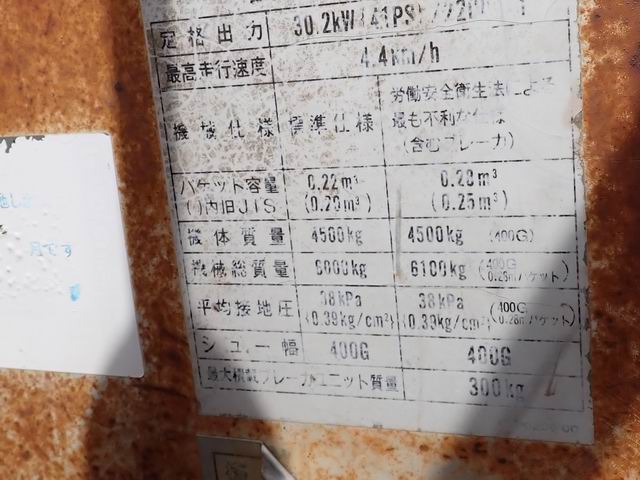 定格出力 30.2kW(41PS)
最高走行速度 4.4km/h
機械仕様 標準仕様 労働安全衛生法による
最も不利な仕様
(含むブレーカ)
バケット容量 0.22m³ 0.28m³
( )内旧JIS (0.20m³) (0.25m³)
機体質量 4500kg 4500kg (400G)
機械総質量 6000kg 6100kg (400G 0.28mバケット)
平均接地圧 38kPa 38kPa (400G
(0.39kg/cm²) (0.39kg/cm²) 0.28mバケット)
シュー幅 400G 400G
最大積載ブレーカユニット質量 300kg
月です